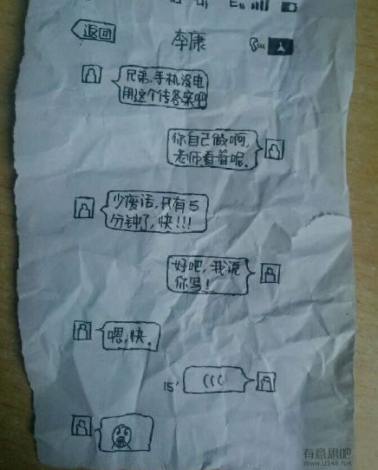 返回
李康
兄弟,手机没电
用这个传答案吧
你自己做啊,
老师看着呢.
少废话,只有5
分钟了,快!!!
好吧,我说
你写!
嗯,快.
15'
(((
有意思吧